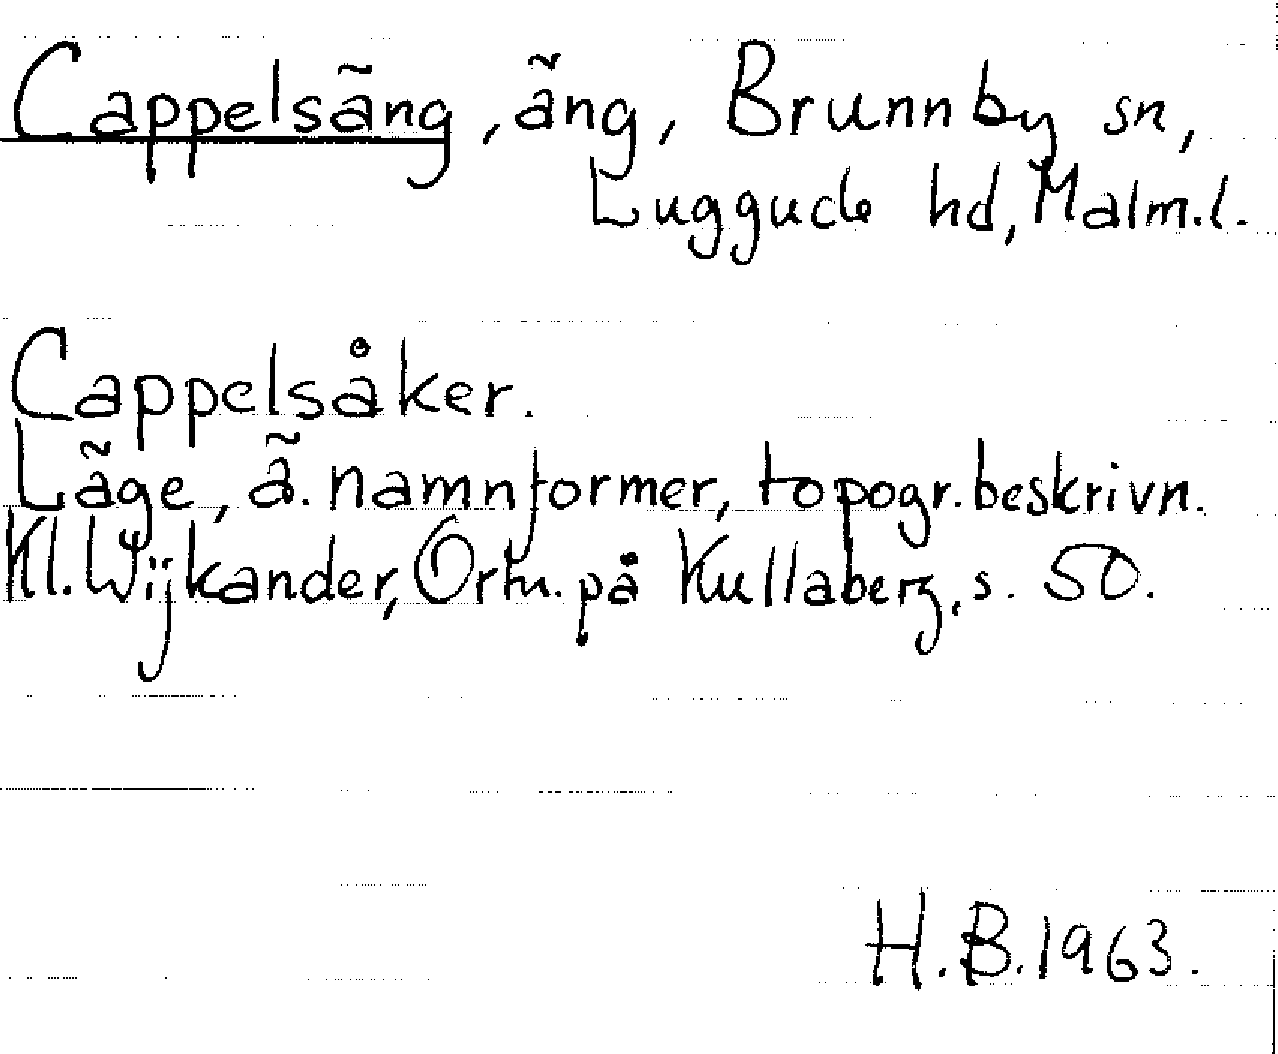 Cappelsäng, äng, Brunnby sn,
Luggude hd, Malm.l.
Cappelsåker.
Läge, ä. namnformer, topogr. beskrivn.
Kl. Wijkander, Ortn. på Kullaberg, s. 50.
H.B. 1963.